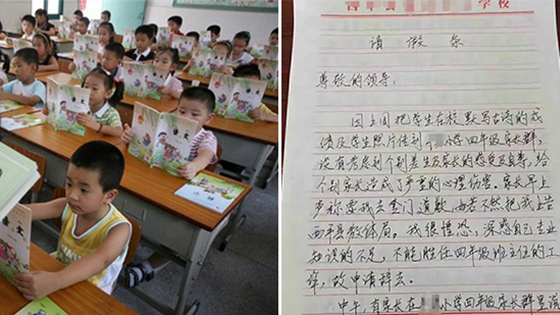 学校
请假条
尊敬的领导:
因上周把学生在校默写古诗的成
绩及学生照片传到小学四年级家长群,
没有考虑到个别差生及家长的感受及自尊,给
个别家长造成了严重的心理伤害。家长早上
声称要我去登门道歉,如若不然把我上告
西平县教体局。我很惶恐,深感自己专业
知识的不足,不能胜任四年级班主任的工
作,故申请辞去。
中午,有家长在小学四年级家长群里